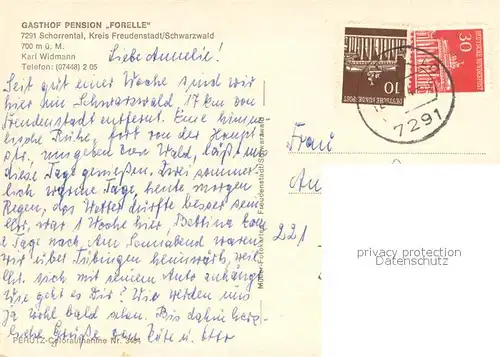 GASTHOF PENSION „FORELLE"
7291 Schorrental, Kreis Freudenstadt/Schwarzwald
700 m ü. M.
Karl Widmann
Telefon: (07448) 2 05
Liebe Annelie!
Seit gut einer Woche sind wir
hier im Schwarzwald 17 km von
Freudenstadt entfernt. Eine himm-
lische Ruhe, fort von der Haupt
str., umgeben von Wald, läßt uns
diese Tage genießen. Zwei sommer-
lich warme Tage, heute morgen
Regen, das Wetter dürfte besser sein
war 1 Woche hier, Bettina
Tage nach. Am Sonnabend waren
wir über Tübingen heimwärts, weil
sich mit seinem Auto
Wie geht es Dir? Wir werden uns
ja wohl bald sehen. Bis dahin herz-
liche Grüße von Käte u. Otto
PERUTZ-Coloraufnahme Nr. 3481
Freudenstadt/Schwarzwald
10
DEUTSCHE BUNDESPOST
30
DEUTSCHE BUNDESPOST
7291
Frau
An
221
privacy protection
Datenschutz